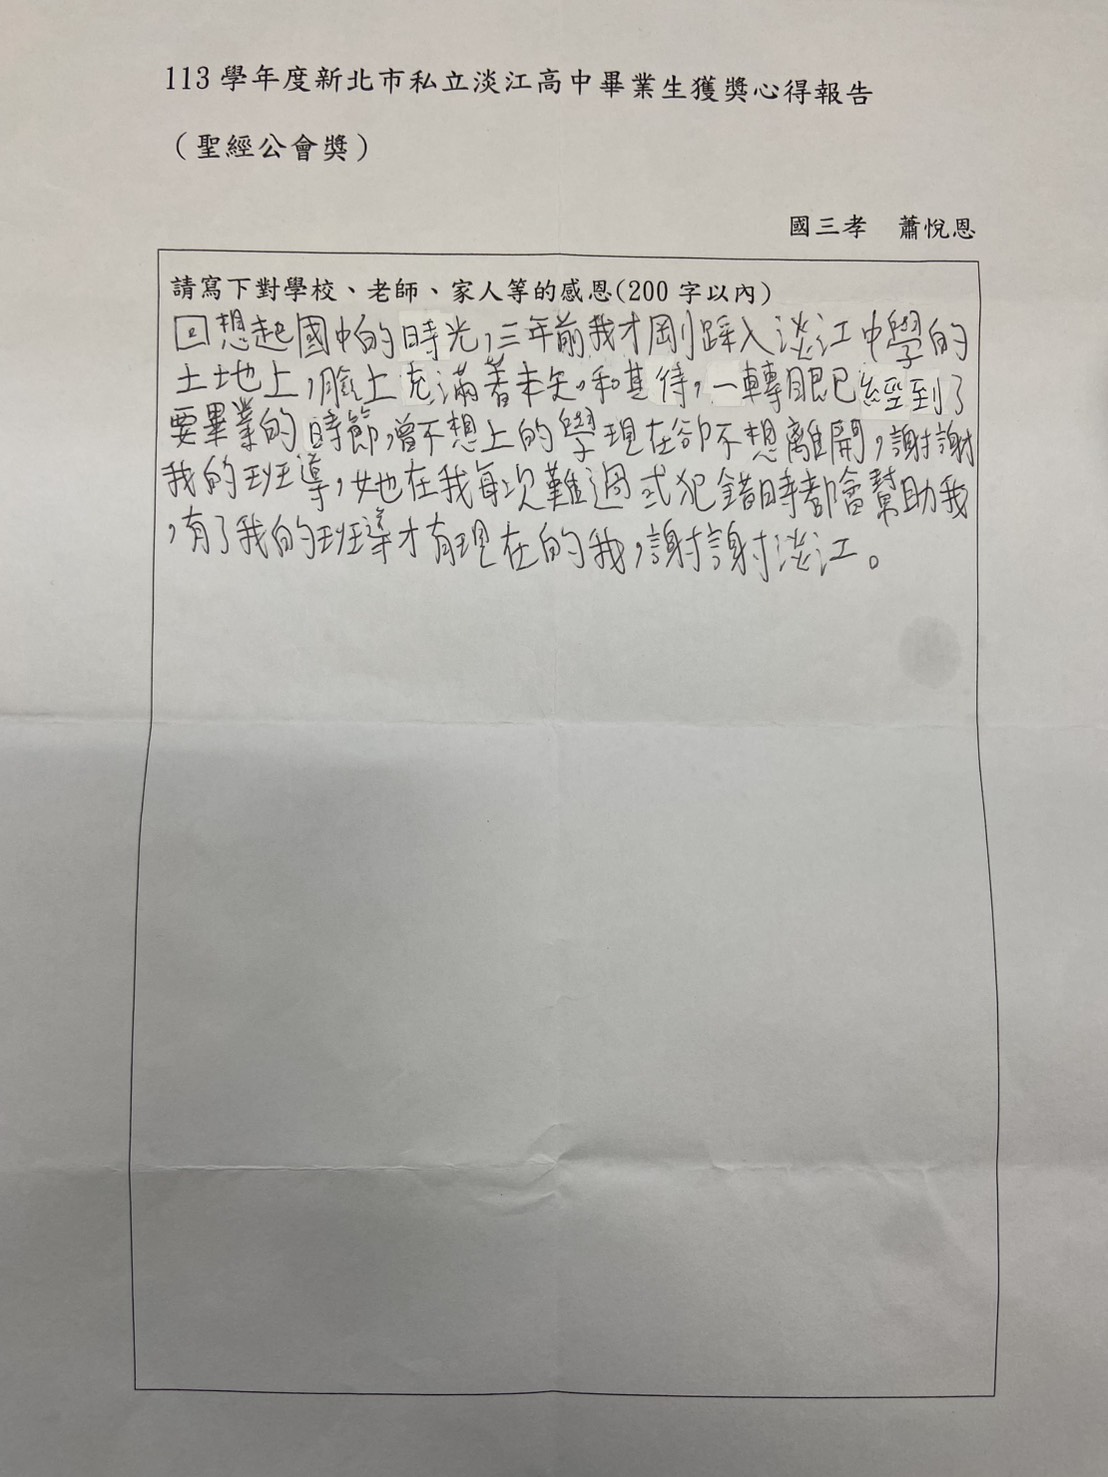 113 學年度新北市私立淡江高中畢業生獲獎心得報告
（聖經公會獎）
國三孝　蕭悅恩
請寫下對學校、老師、家人等的感恩(200 字以內)
回想起國中的時光，三年前我才剛踩入淡江中學的
土地上，臉上充滿著未知和期待，一轉眼已經到了
要畢業的時節，曾不想上的學現在卻不想離開，謝謝
我的班導，她在我每次難過或犯錯時都會幫助我
，有了我的班導才有現在的我，謝謝淡江。